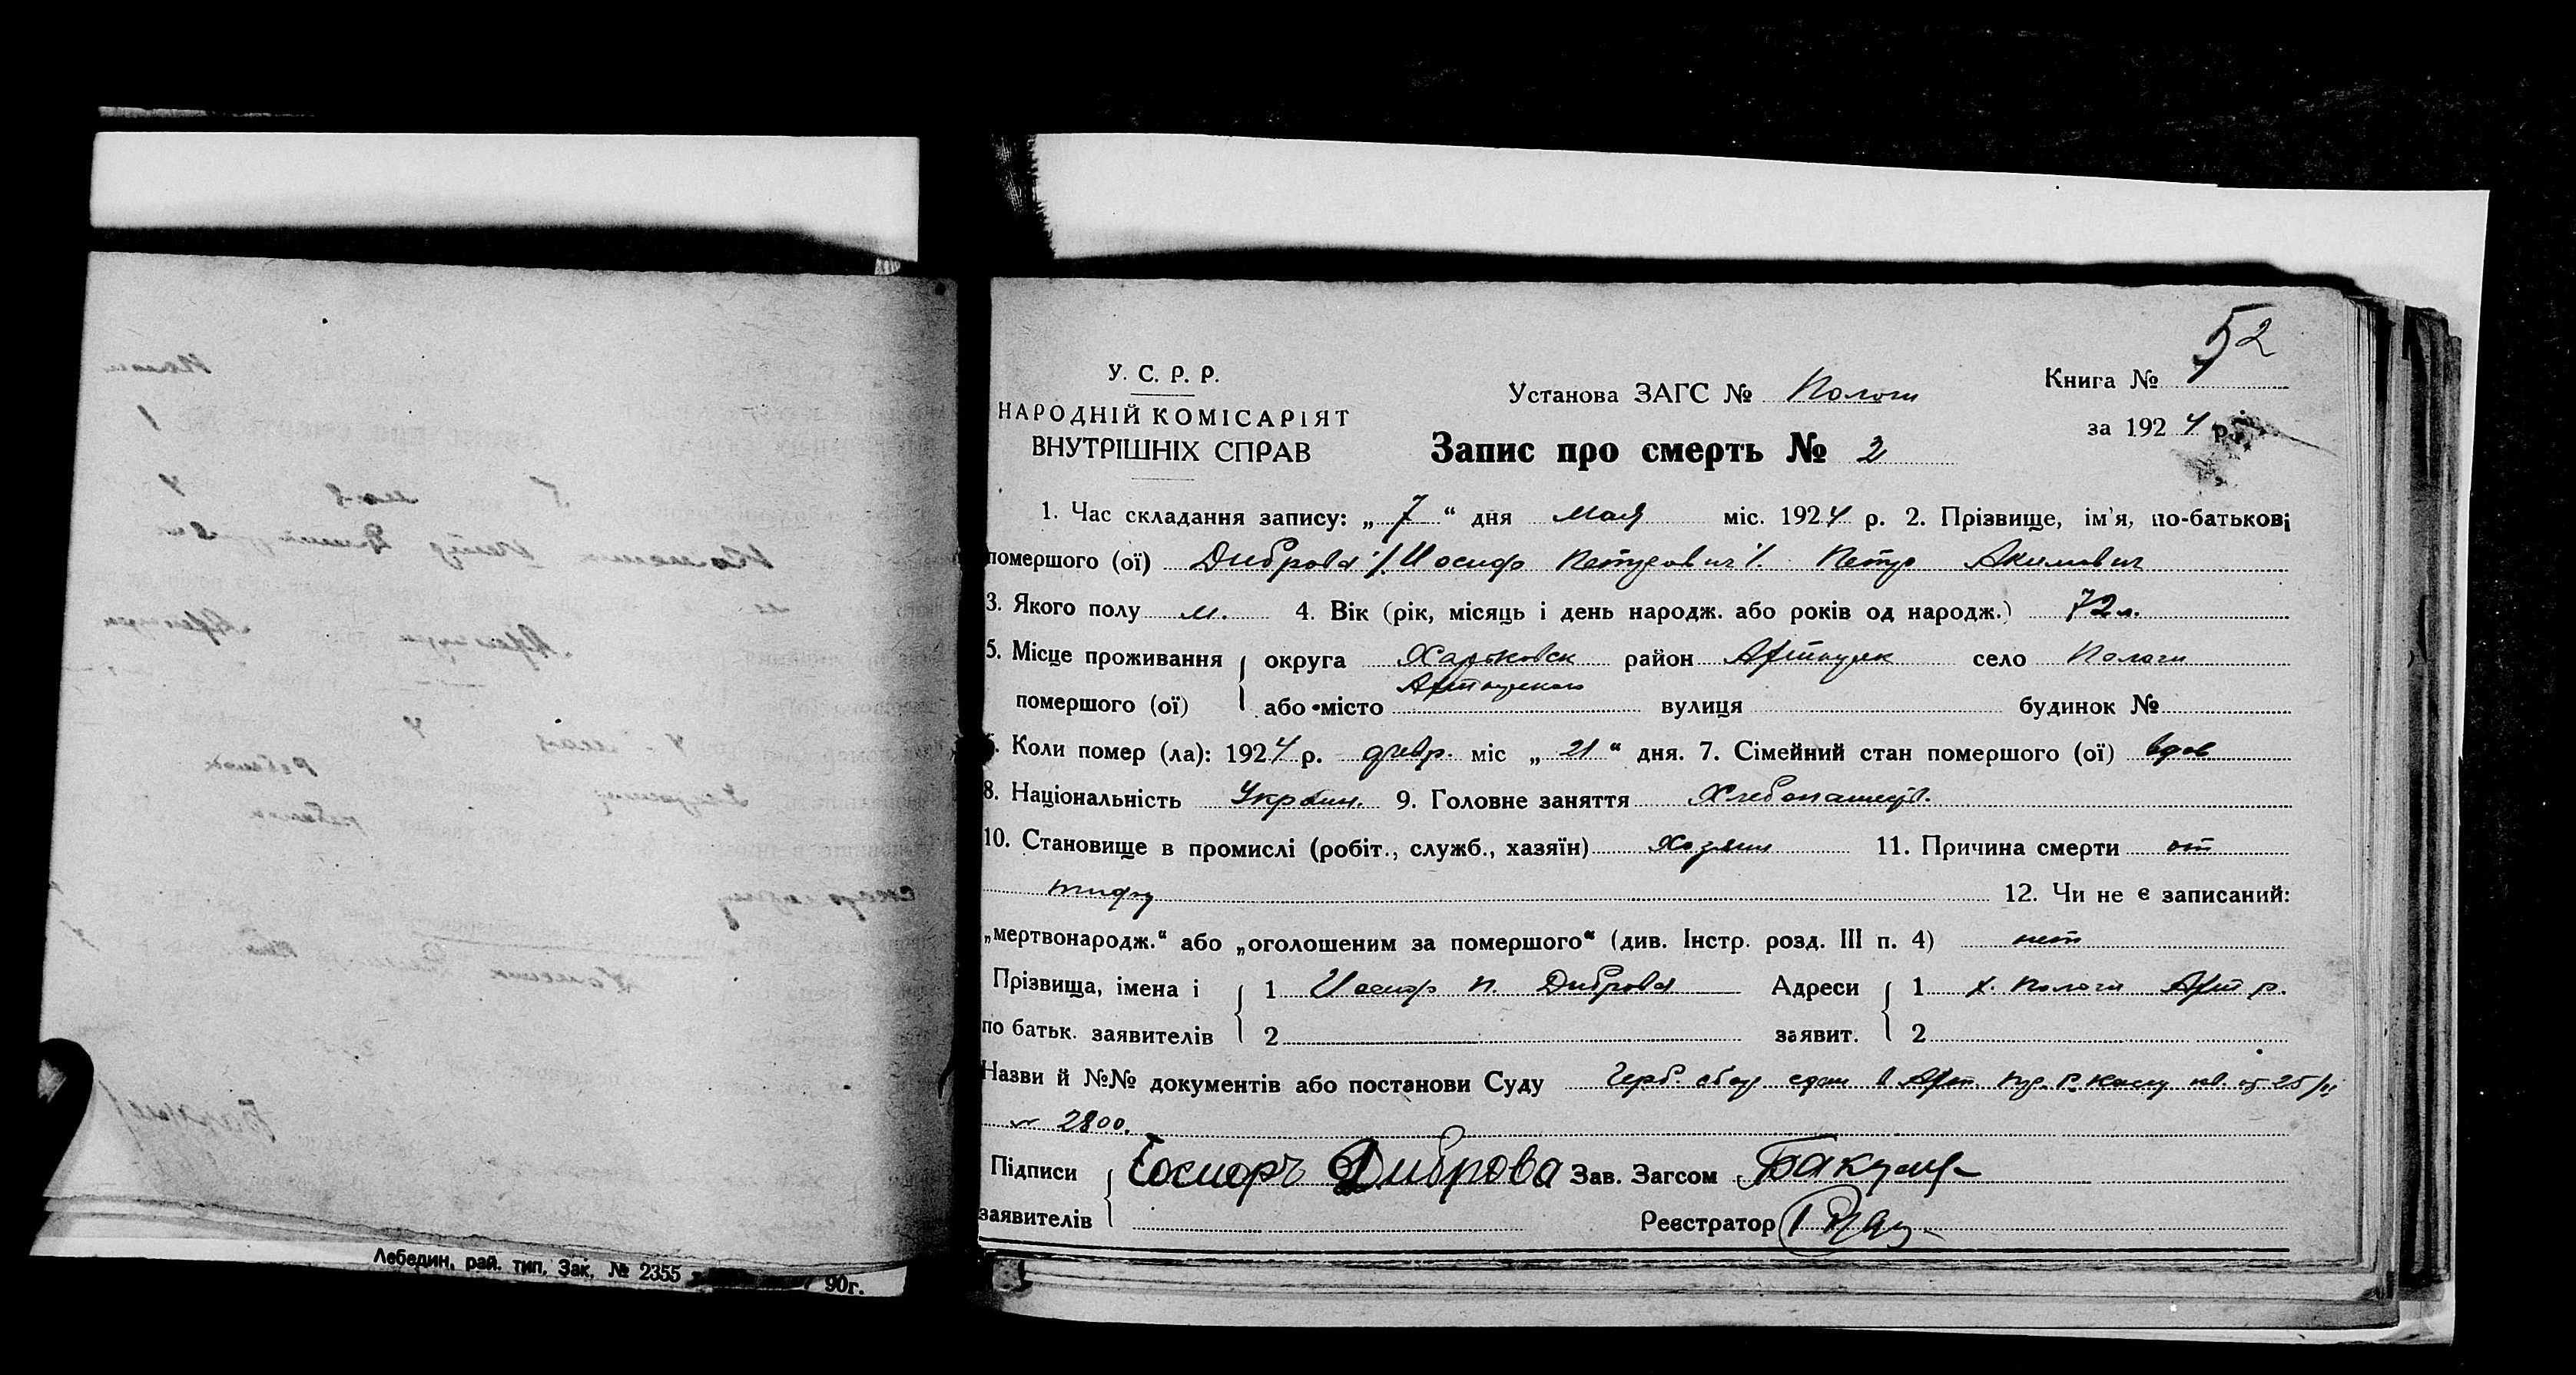 52
У. С. Р. Р.
НАРОДНІЙ КОМІСАРІЯТ
ВНУТРІШНІХ СПРАВ
Установа ЗАГС № Пологи
Книга №
за 1924 р.
Запис про смерть № 2
1. Час складання запису: „7“ дня мая міс. 1924 р. 2. Прізвище, ім'я, по-батькові
помершого (ої) Диброва /Иосиф Петрович/. Петр Акимович
3. Якого полу м. 4. Вік (рік, місяць і день народж. або років од народж.) 72 л.
5. Місце проживання помершого (ої) округа Харьковск район село Пологи
або місто вулиця будинок №
Коли помер (ла): 1924 р. февр. міс „21“ дня. 7. Сімейний стан помершого (ої) вдов
8. Національність Украин. 9. Головне заняття Хлебопашец.
10. Становище в промислі (робіт., служб., хазяїн) Хозяин 11. Причина смерти от
тифу 12. Чи не є записаний:
„мертвонародж.“ або „оголошеним за помершого“ (див. Інстр. розд. III п. 4) нет
Прізвища, імена і по батьк. заявителів 1 Иосиф П. Диброва Адреси заявит. 1 х. Пологи р.
2 2
Назви й №№ документів або постанови Суду в 25/II
№ 2800.
Підписи заявителів Іосифъ Диброва Зав. Загсом
Реєстратор
Лебедин, рай. тип, Зак. № 2355 90г.